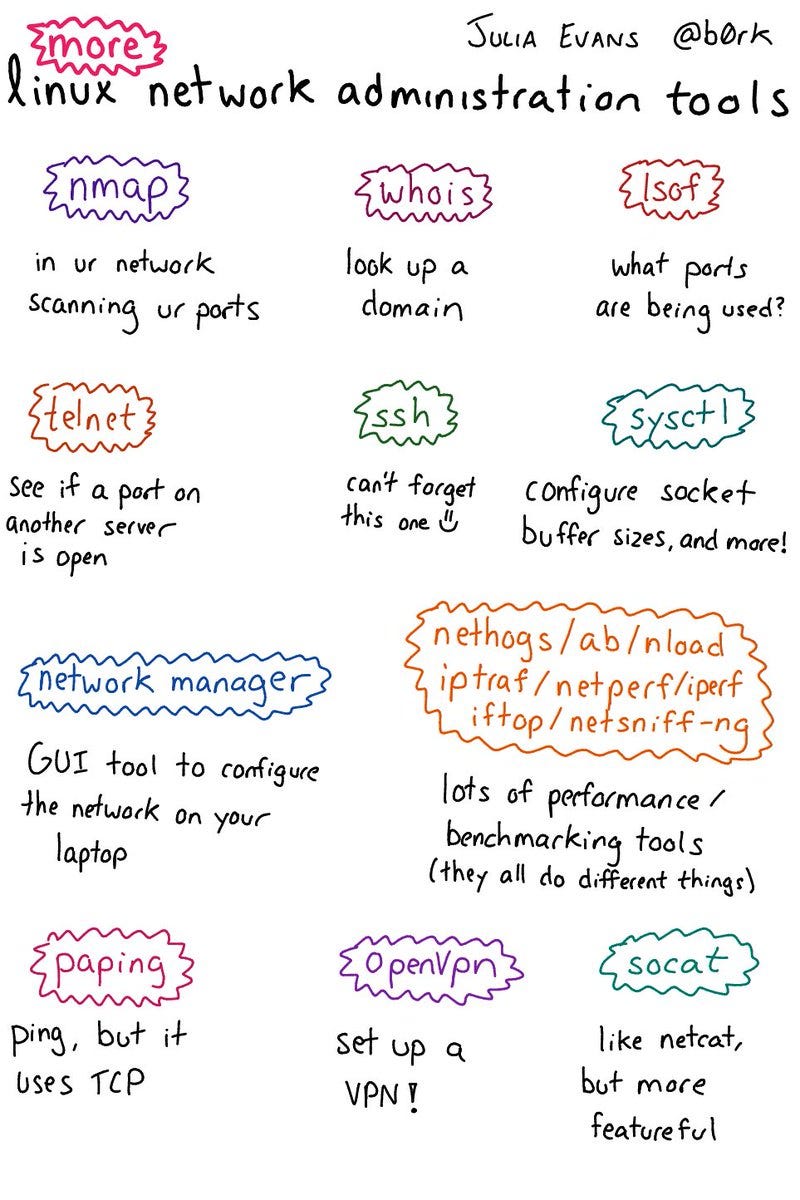 more
JULIA EVANS @b0rk
linux network administration tools
nmap
in ur network
scanning ur ports
whois
look up a
domain
lsof
what ports
are being used?
telnet
see if a port on
another server
is open
ssh
can't forget
this one
sysctl
configure socket
buffer sizes, and more!
network manager
GUI tool to configure
the network on your
laptop
nethogs/ab/nload
iptraf/netperf/iperf
iftop/netsniff-ng
lots of performance/
benchmarking tools
(they all do different things)
paping
ping, but it
uses TCP
OpenVpn
set up a
VPN!
socat
like netcat,
but more
featureful